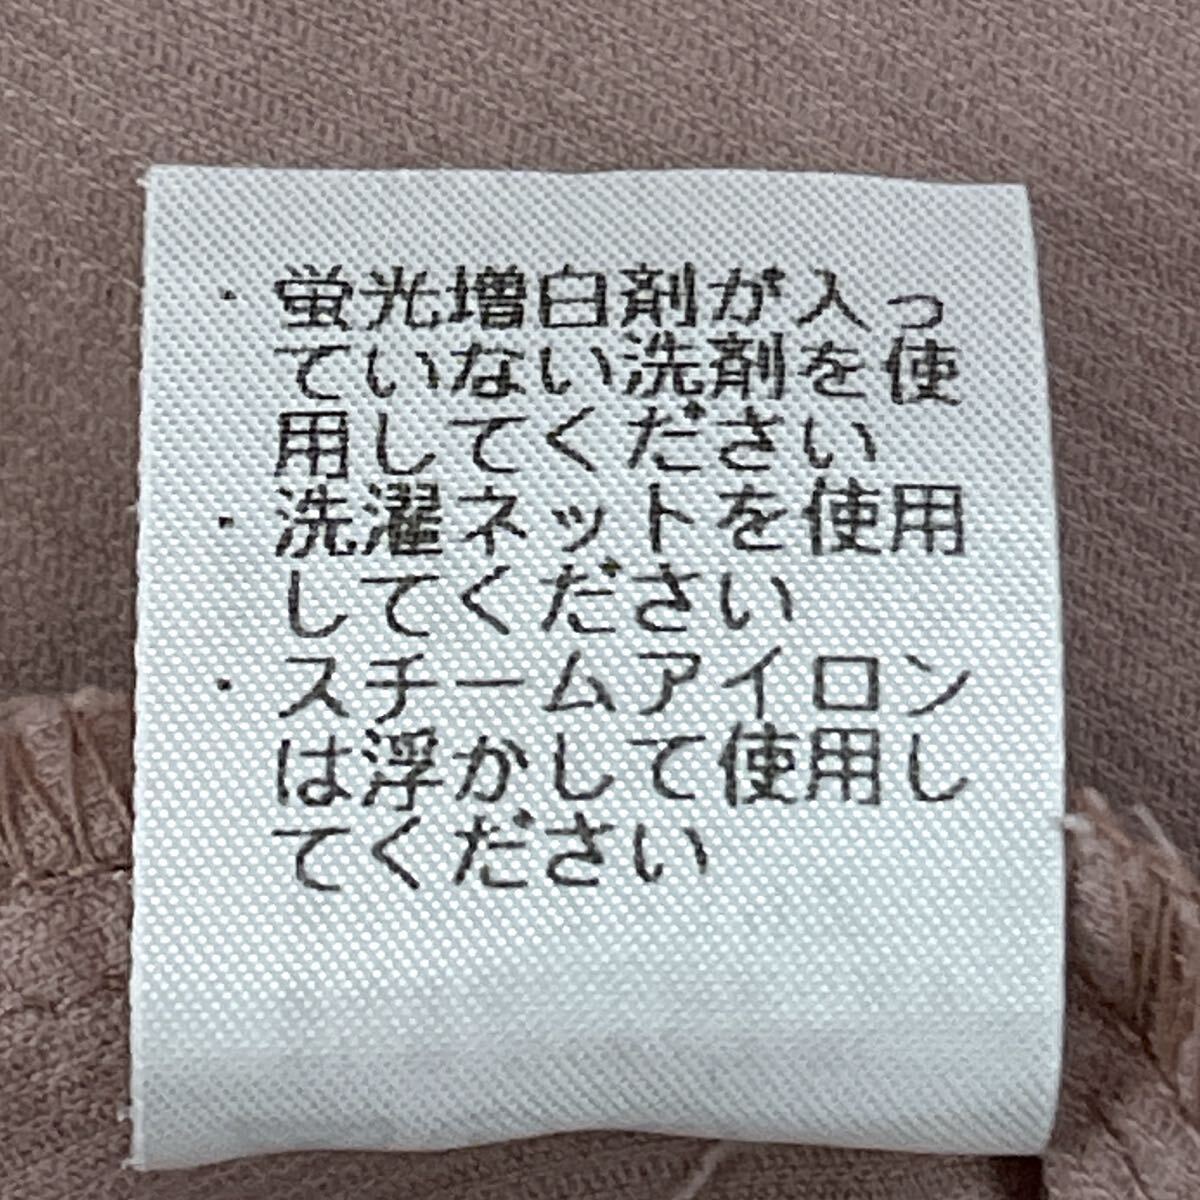 ・蛍光増白剤が入っ
ていない洗剤を使
用してください
・洗濯ネットを使用
してください
・スチームアイロン
は浮かして使用し
てください